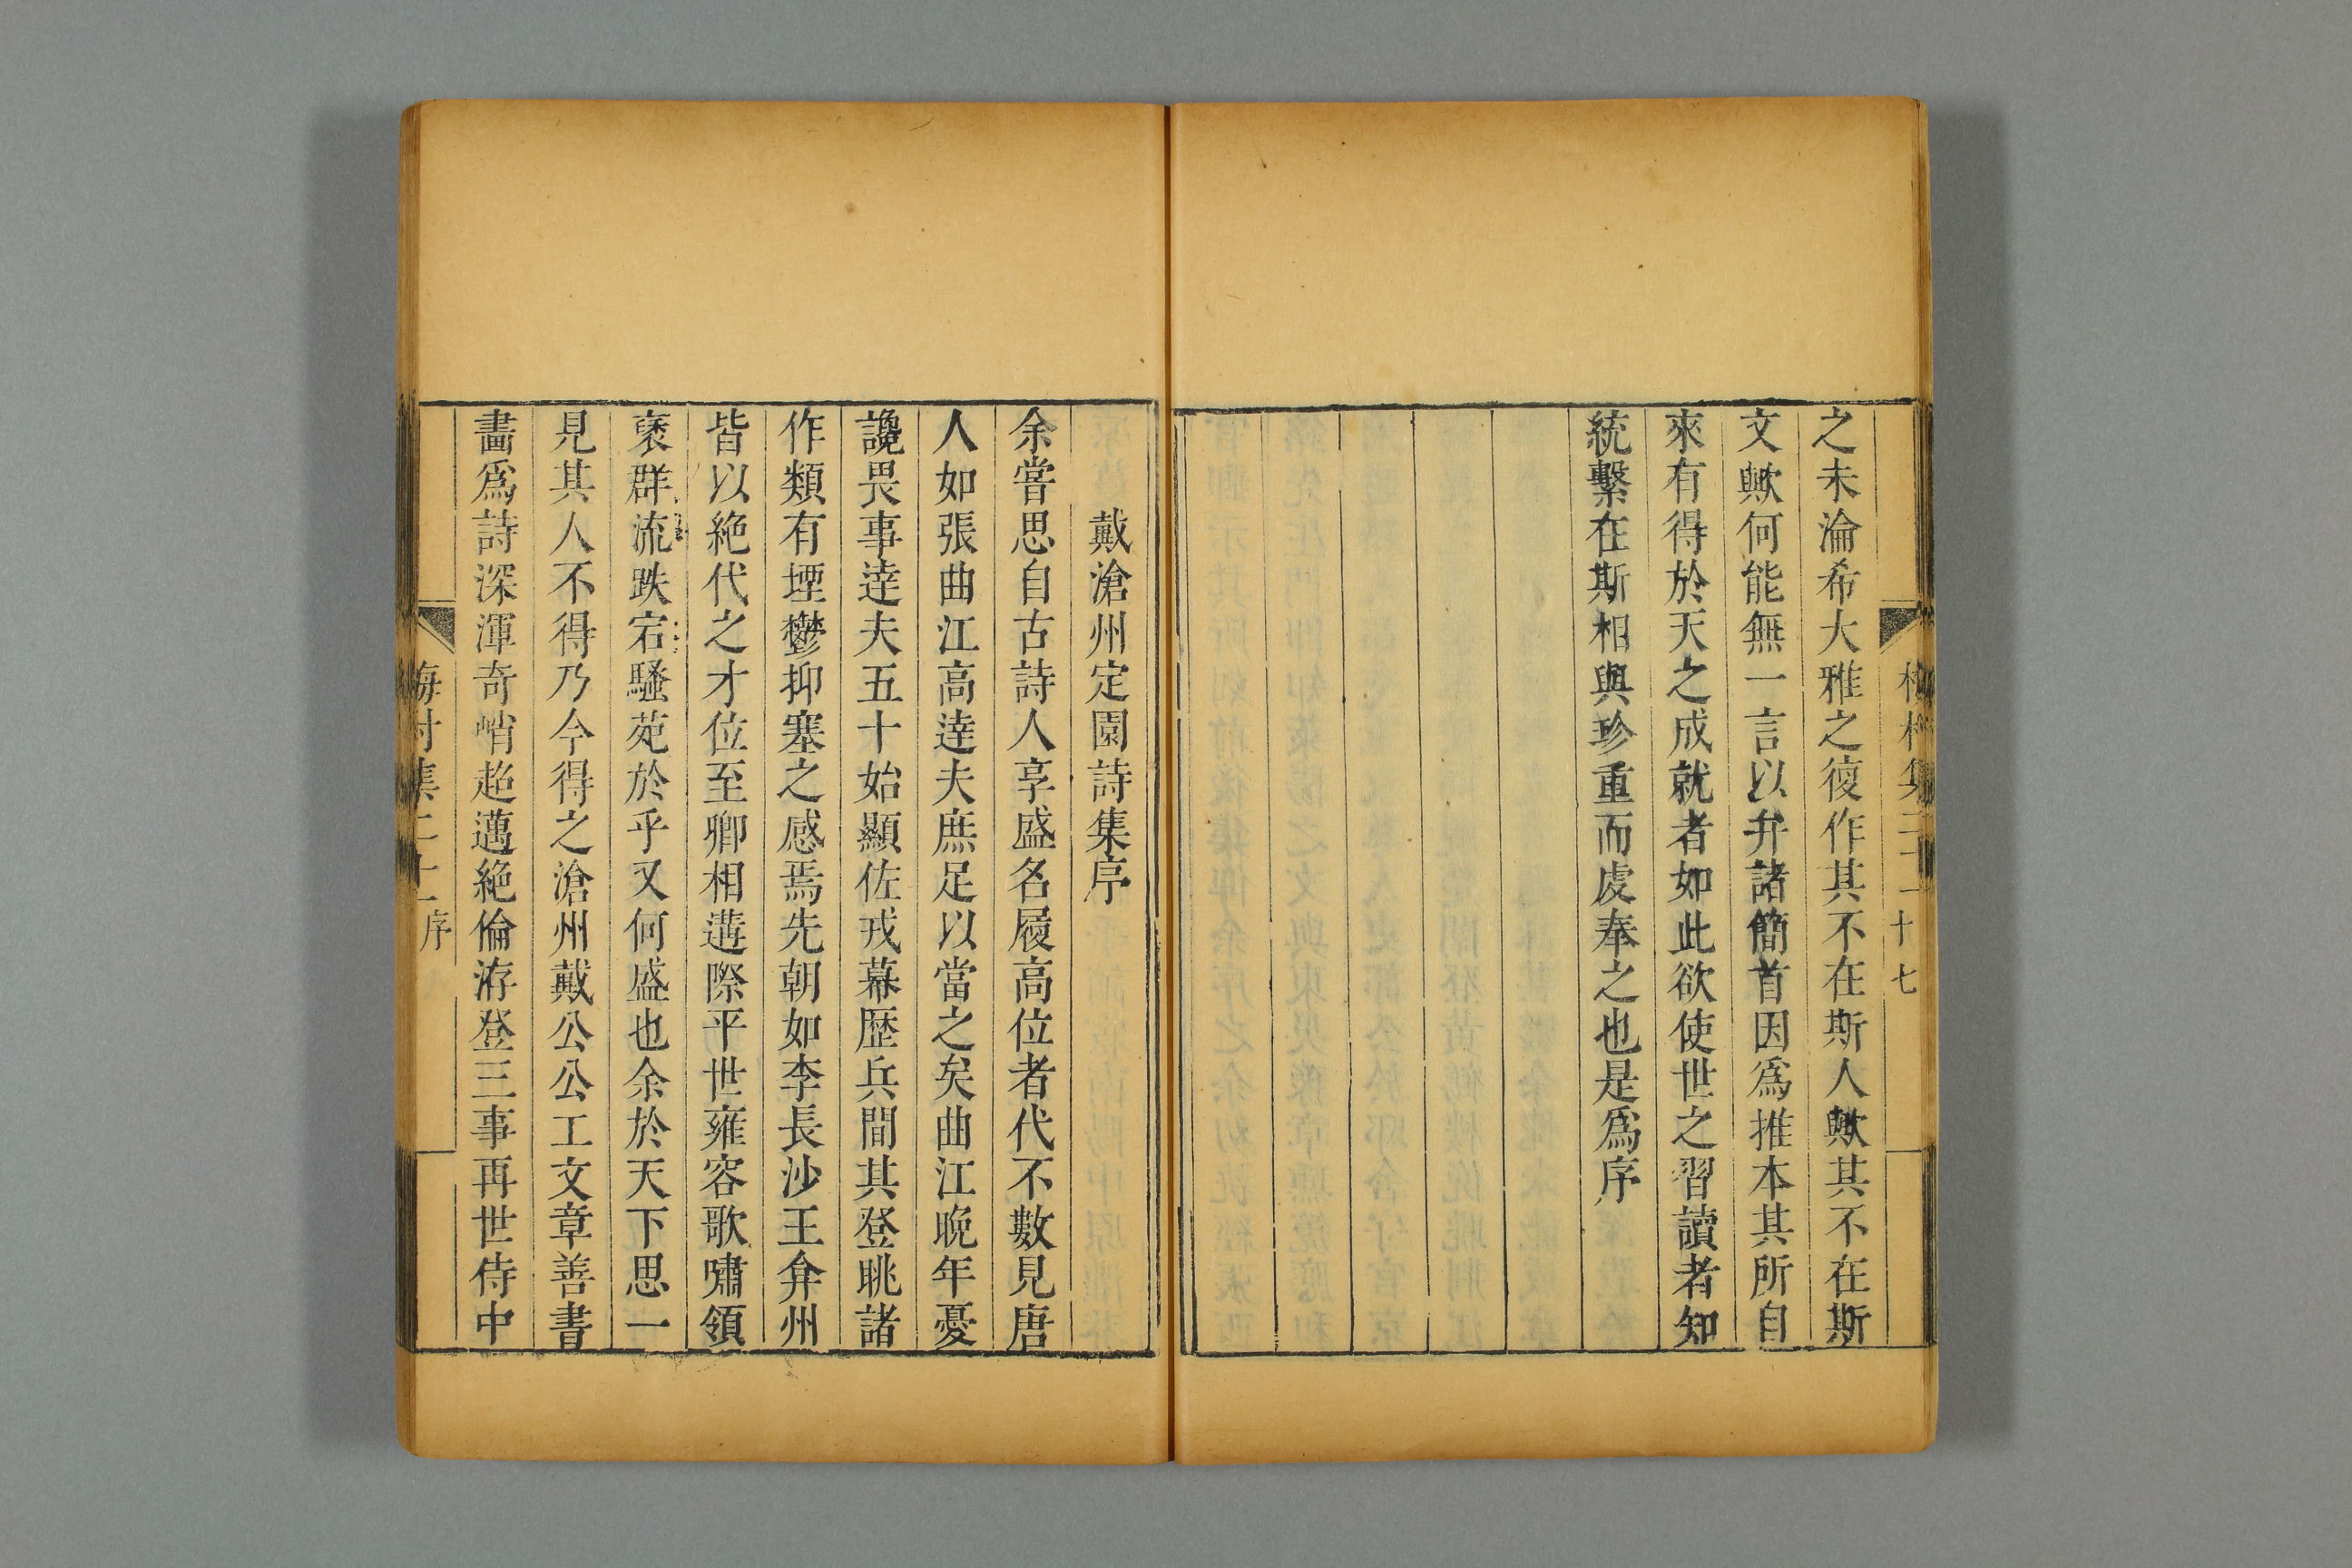 梅村集二十一 十七
之未淪希大雅之復作其不在斯人歟其不在斯
文歟何能無一言以弁諸簡首因爲推本其所自
來有得於天之成就者如此欲使世之習讀者知
統繫在斯相與珍重而虔奉之也是爲序
戴滄州定園詩集序
余嘗思自古詩人享盛名履高位者代不數見唐
人如張曲江高逹夫庶足以當之矣曲江晚年憂
讒畏事逹夫五十始顯佐戎幕歷兵間其登眺諸
作類有堙鬱抑塞之感焉先朝如李長沙王弇州
皆以絕代之才位至卿相遘際平世雍容歌嘯領
裒群流跌宕騷苑於乎又何盛也余於天下思一
見其人不得乃今得之滄州戴公公工文章善書
畵爲詩深渾奇峭超邁絕倫洊登三事再世侍中
梅村集二十一 序